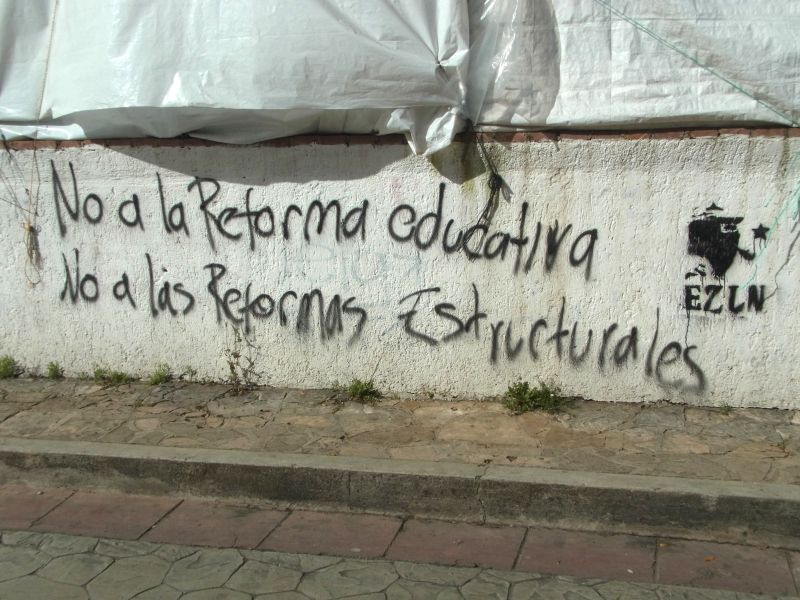 No a la Reforma educativa
No a las Reformas Estructurales
EZLN